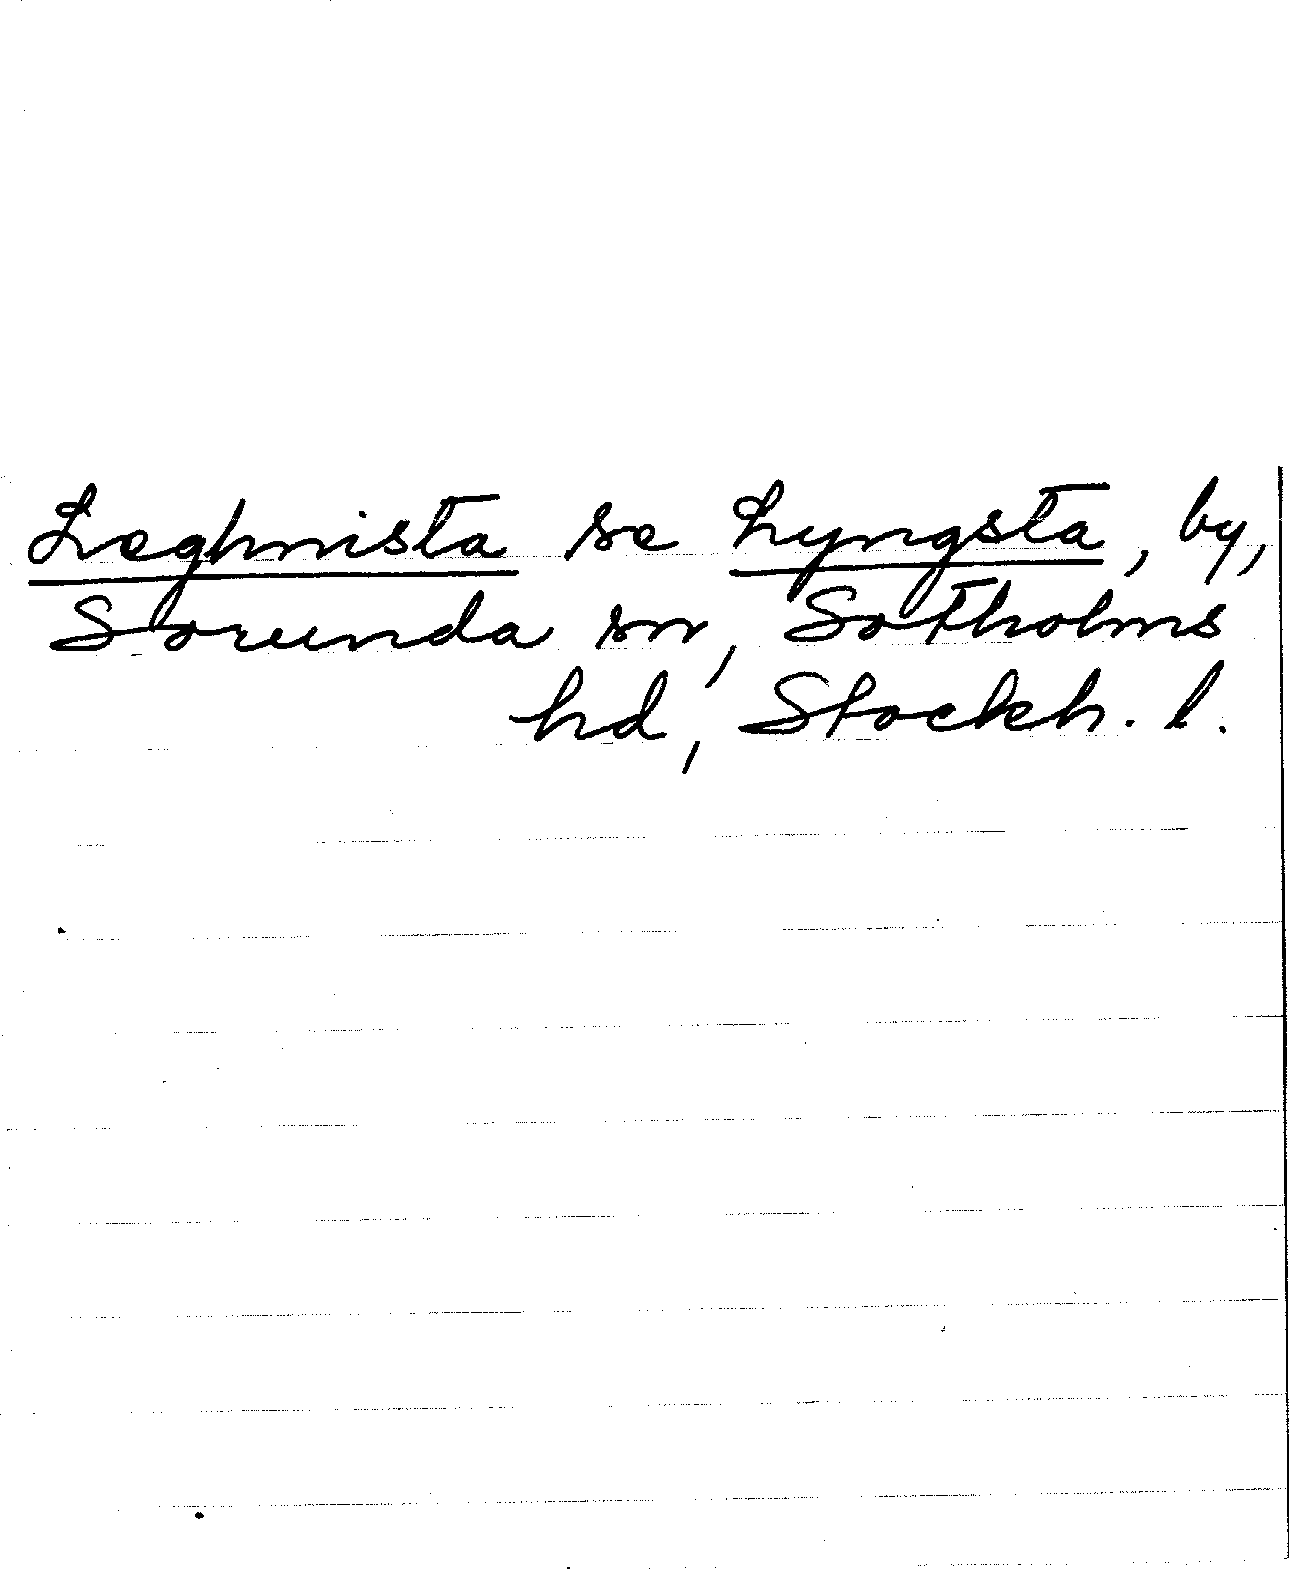 Leghnista se Lyngsta, by,
Sorunda sn, Sotholms
hd, Stockh. l.